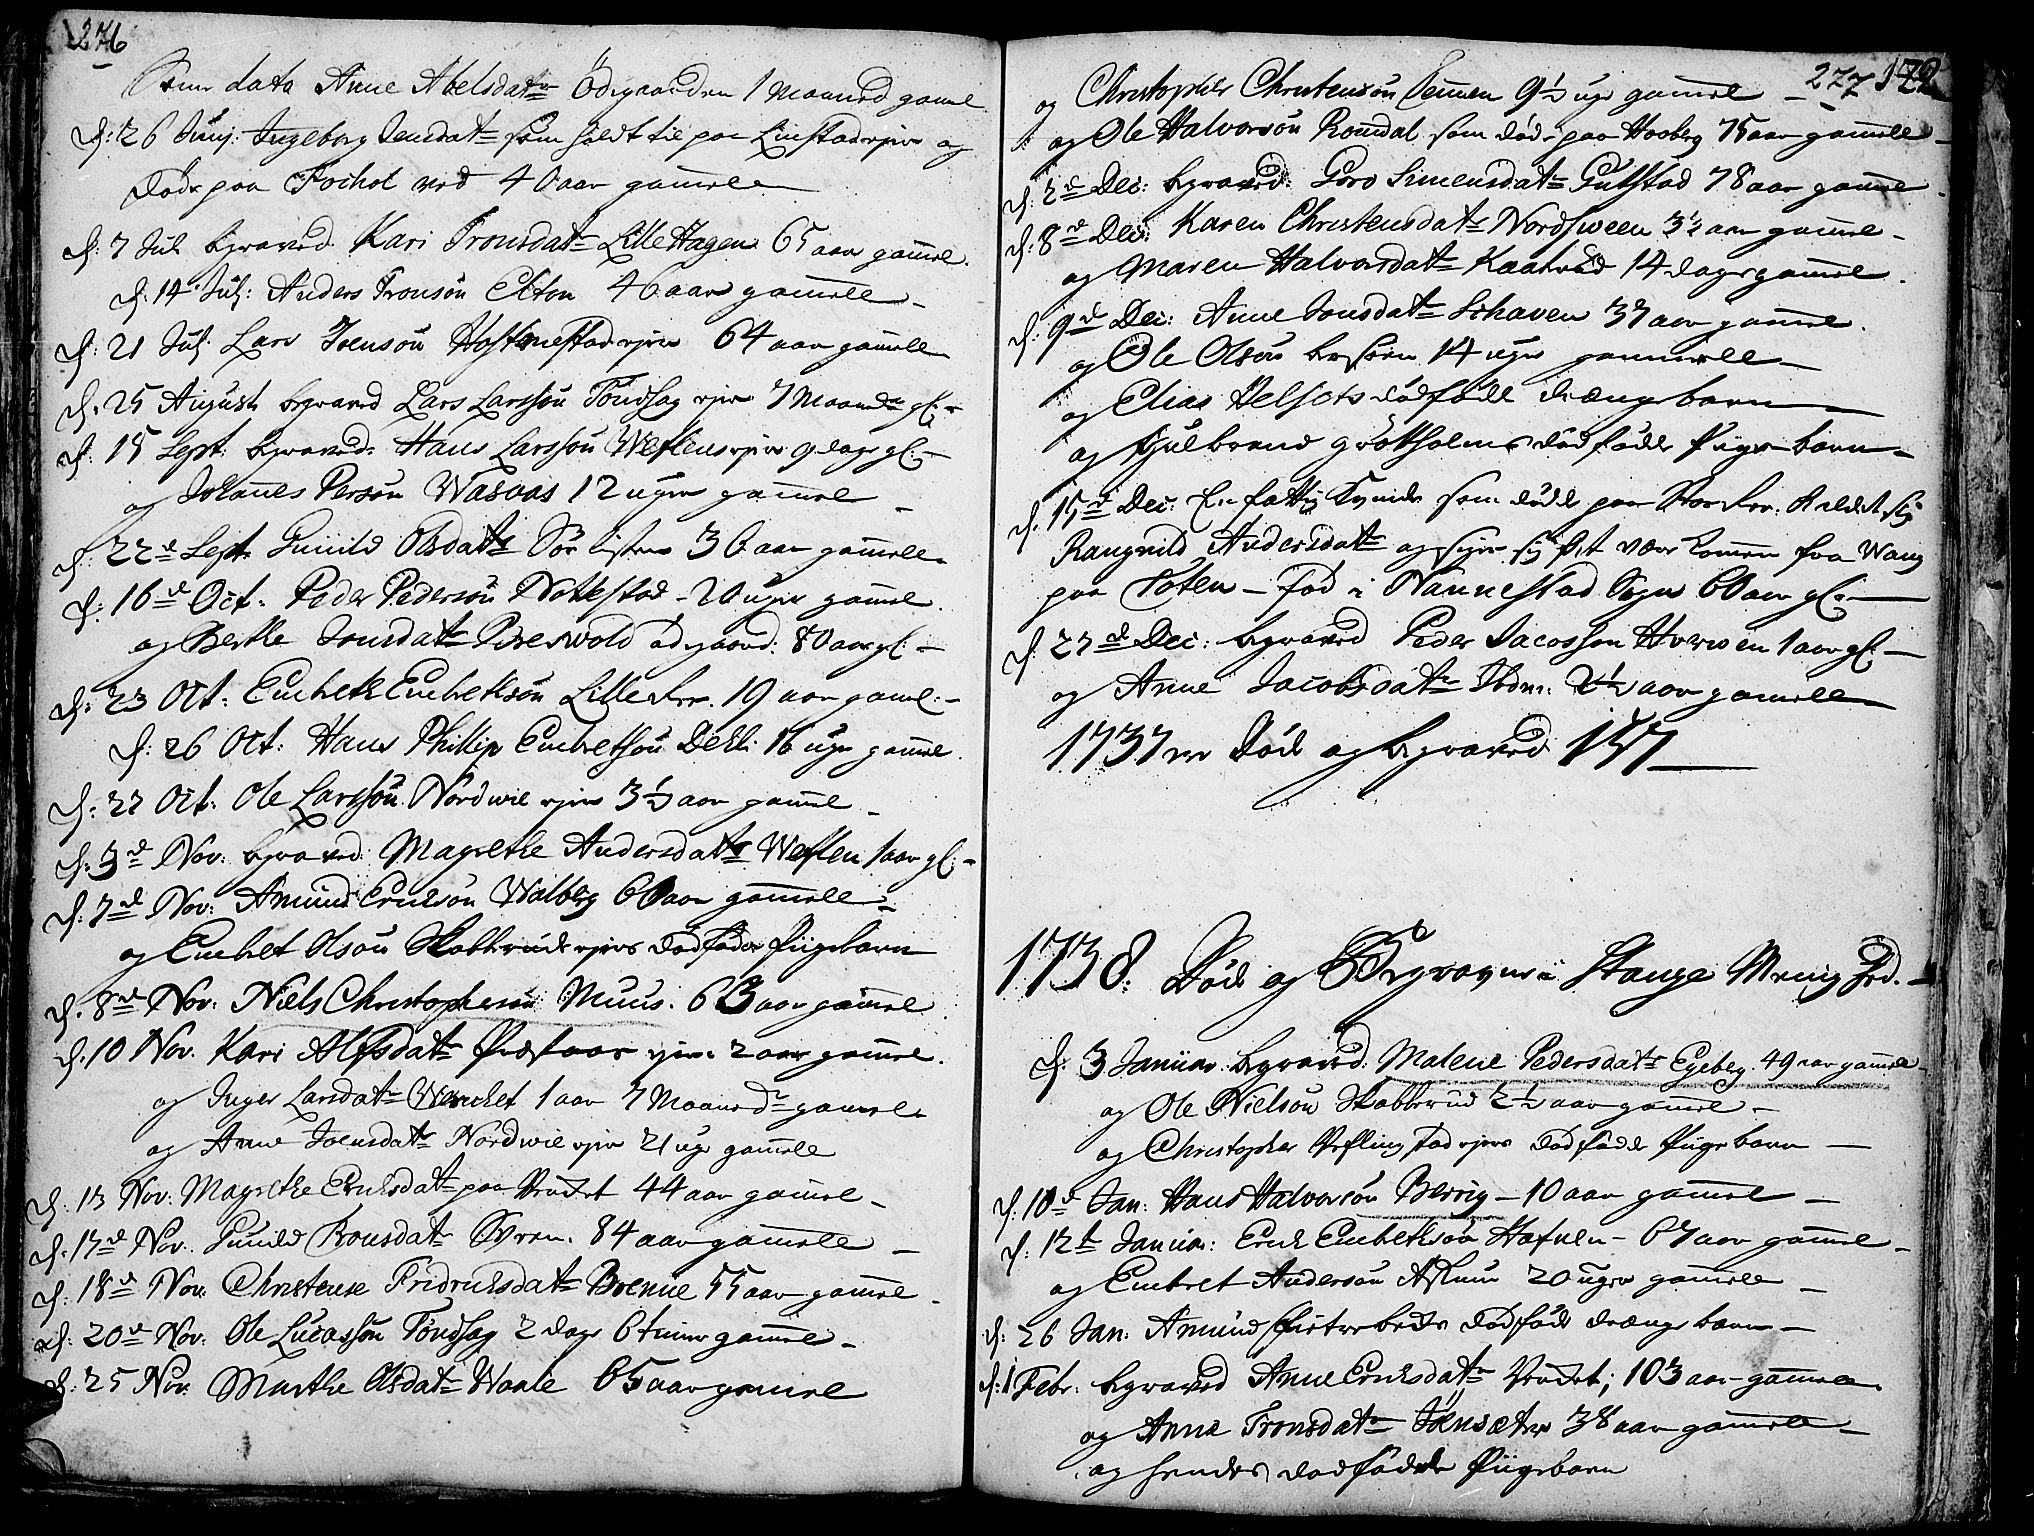 276
data Anne Abelsdatr Ödegaarden 1 Maaned gamel
d: 26 Junj: Ingeborg Jensdatr som holdt til paa Linstad ejer og
døde paa Fochol ved 40 aar gammel
d: 7 Jul begraved Kari Tronsdatr Lille Hagen 65 aar gammel.
d: 14 Jul: Anders Tronsøn Elton 46 aar gammel
d: 21 Jul Lars Joensøn Hosmestad ejer 64 aar gammel
d: 25 August begraved Lars Larssøn Tøndsag ejer 7 Maander gl:
d: 15 Sept: begraved Hans Larssøn Weflens ejer 9 dage gl:
og Johannes Persøn Wasaas 12 uger gammel
d: 22d Sept Gunild Olsdatr Sør 36 aar gammel.
d: 16d Oct: Peder Pedersøn Nokkestad 20 uger gammel.
og Berthe Jonsdatr Pireswold Ødegaard: 80 aar gl:
d: 23 Oct: Embreth Embrethsøn Lille Ree. 19 aar gaml:
d: 26 Oct: Hans Phillip Embretsøn Dehli 16 uger gammel.
d: 27 Oct: Ole Larssøn Nordwie ejer 3½ aar gammel
d: 3d Nov: begraved Magrethe Andersdatr Weflen 1 aar gl:
d: 7d Nov: Amund Ericksøn Walberg 60 aar gammel
og Embret Olsøn Skabberud ejers dødføde Pigebarn
d: 8d Nov: Niels Christophersøn Muus. 63 aar gammel
d: 10 Nov. Kari Alfsdatr Præstaas ejer 2 aar gammel.
og Inger Larsdatr 1 aar 7 Maaneder gammel
og Anne Joensdatr Nordwie ejer 21 uge gammel
d: 13 Nov: Magrethe Ericksdatr paa 44 aar gammel
d: 17d Nov. Gunild Tronsdatr 84 aar gammel
d: 18d Nov: Christense Fridricksdatr Brenne 55 aar gammel
d: 20d Nov: Ole Lucassøn Tøndsag 2 dage 6 timer gammel
d: 25 Nov Marthe Olsdatr Waale 65 aar gammel
277 172
og Christopher Christensøn 9½ uge gammel
og Ole Halvorsøn Romdal som døde paa Hosberg 75 aar gammel
d: 2d Dec: begraved Goro Simensdatr Gutstad 78 aar gammel
d: 8d Dec: Karen Christensdatr Nordsween 3½ aar gammel
og Maren Halvorsdatr Kaatrud 14 dage gammel.
d: 9d Dec: Anne Jonsdatr Schaven 37 aar gammel.
og Ole Olsøn 14 uger gammel
og Elias Helsets dødfødde drænge barn
og Gulbrand Grøtholms dødfødde Pige barn
d: 15d Dec: En fattig Kvinde som døde paa Stor Ree. Kaldet sig
Rangnild Andersdatr og siger sig at være kommen fra Wang
paa Toten – fød i Nannestad Sogn 60 aar gl:
d: 27d Dec: begraved Peder Jacobsøn 1 aar gl:
og Anne Jacobsdatr Ibdm: 2½ aar gammel
1737 er døde og begraved 157
1738. Døde og Begravne i Stange Menighed.
d: 3 Januar: begraved Malene Pedersdatr Egeberg. 49 aar gammel
og Ole Nielsøn Skabberud 2½ aar gammel
og Christopher Veflingstad ejers dødfødde Pige barn
d: 10d Jan: Hans Halvorsøn Berrig – 10 aar gammel
d: 12t Januar: Erick Embrethsøn Hafnen – 67 aar gammel
og Embret Andersøn Askum 20 uger gammel
d: 26 Jan: Amund dødfødde drænge barn
d: 1 Febr. begraved Anne Ericksdatr 103 aar gammel
og Anne Tronsdatr Jønsæter 38 aar gammel
og hendes dødfødde Pigebarn